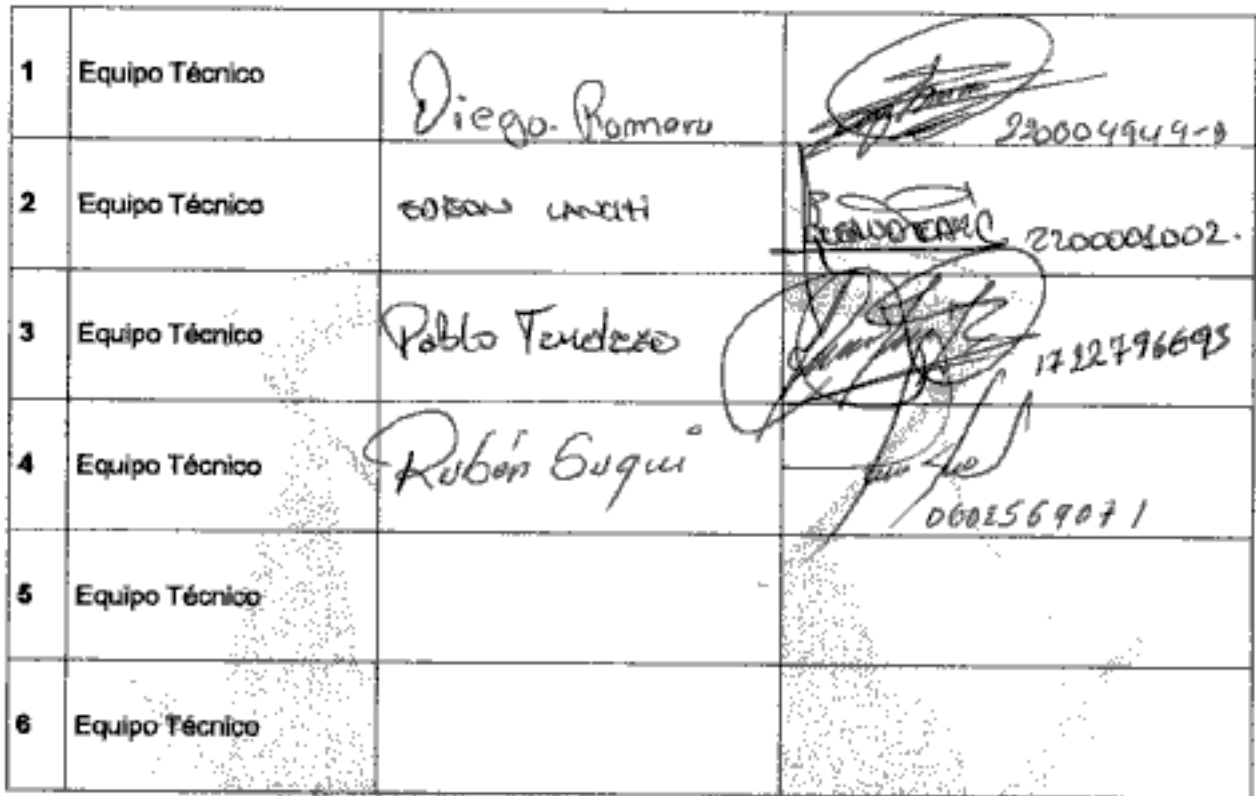 1 Equipo Técnico Diego. Romero 220004944-8
2 Equipo Técnico 2200001002.
3 Equipo Técnico Pablo 1722796693
4 Equipo Técnico Rubén Guqui 0602569071
5 Equipo Técnico
6 Equipo Técnico